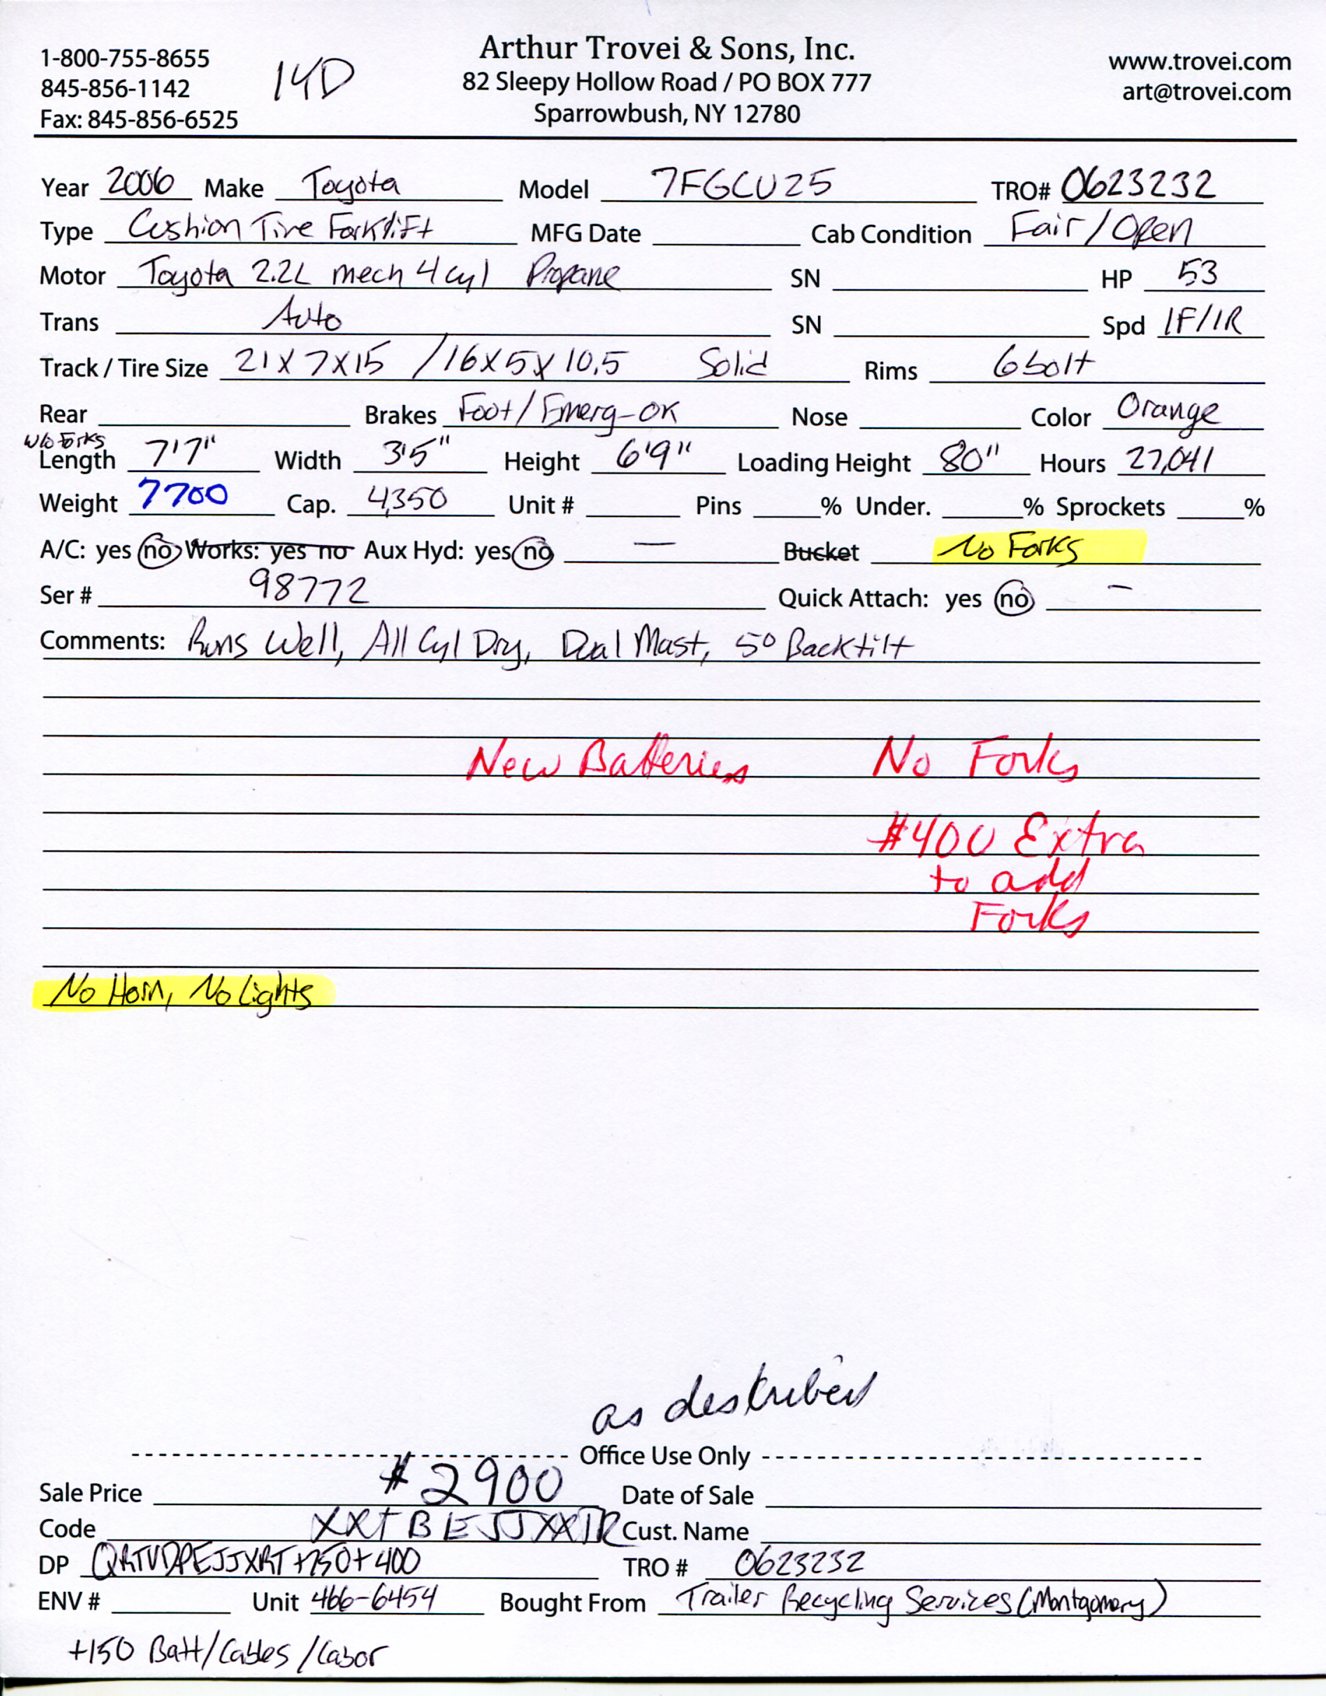 Arthur Trovei & Sons, Inc.
1-800-755-8655 www.trovei.com
845-856-1142 14D 82 Sleepy Hollow Road / PO BOX 777 art@trovei.com
Fax: 845-856-6525 Sparrowbush, NY 12780
Year 2006 Make Toyota Model 7FGCU25 TRO# 0623232
Type Cushion Tire Forklift MFG Date Cab Condition Fair/Open
Motor Toyota 2.2L mech 4cyl Propane SN HP 53
Trans Auto SN Spd 1F/1R
Track / Tire Size 21X7X15 /16X5X10.5 Solid Rims 6bolt
Rear Brakes Foot/Emerg-OK Nose Color Orange
w/o Forks
Length 7'7" Width 3'5" Height 6'9" Loading Height 80" Hours 27,041
Weight 7700 Cap. 4,350 Unit # Pins % Under. % Sprockets %
A/C: yes no Works: yes no Aux Hyd: yes no — Bucket No Forks
Ser # 98772 Quick Attach: yes no —
Comments: Runs Well, All Cyl Dry, Dual Mast, 5° Backtilt
New Batteries No Forks
$400 Extra
to add
Forks
No Horn, No Lights
as described
Office Use Only
Sale Price $2900 Date of Sale
Code Cust. Name
DP +150+400 TRO # 0623232
ENV # Unit 466-6454 Bought From Trailer Recycling Services (Montgomery)
+150 Batt/Cables/Labor